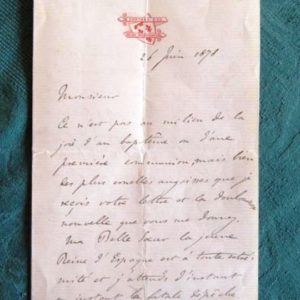 26 Juin 1878
Monsieur
Ce n'est pas au milieu de la
joie d'un baptême ou d'une
première communion, mais bien
les plus cruelles angoisses que je
reçois votre lettre et la douloureuse
nouvelle que vous me donnez.
Ma Belle sœur la jeune
Reine d'Espagne est à toute extré-
mité et j'attends d'instant
instant la fatale dépêche